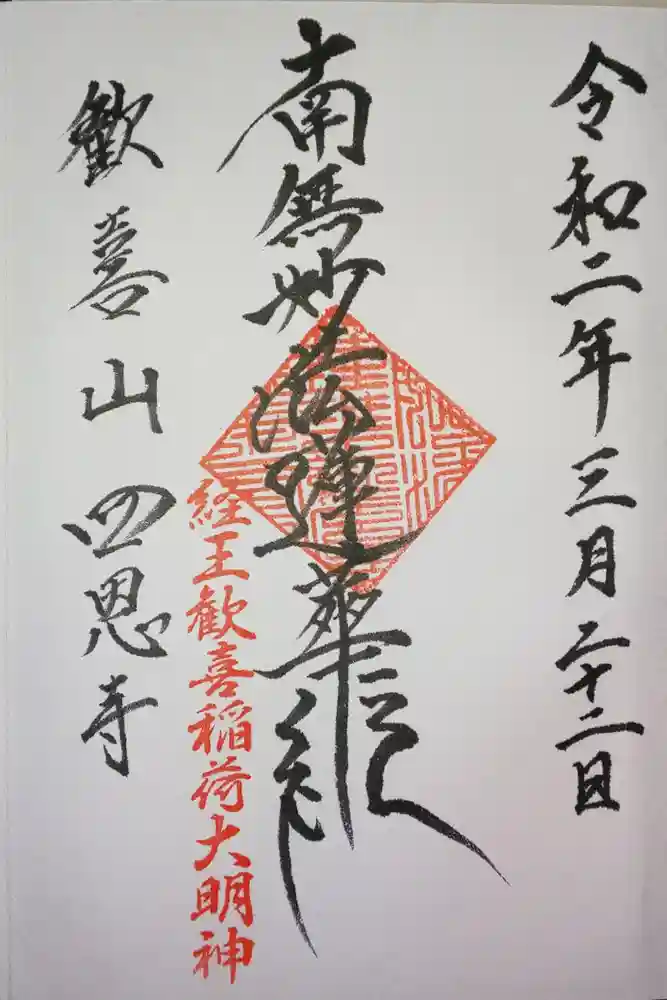 令和二年三月二十二日
南無妙法蓮華経
経王歓喜稲荷大明神
歓喜山四恩寺